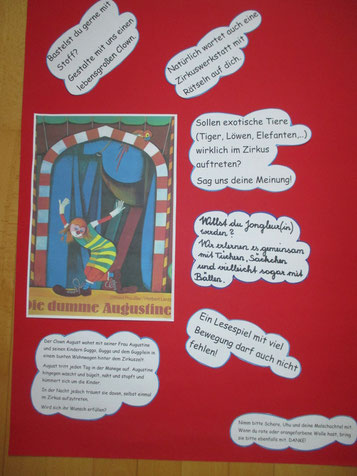 Bastelst du gerne mit
Stoff?
Gestalte mit uns einen
lebensgroßen Clown.
Natürlich wartet auch eine
Zirkuswerkstatt mit
Rätseln auf dich.
Sollen exotische Tiere
(Tiger, Löwen, Elefanten,..)
wirklich im Zirkus
auftreten?
Sag uns deine Meinung!
Willst du Jongleur(in)
werden?
Wir erlernen es gemeinsam
mit Tüchern, Säckchen
und vielleicht sogar mit
Bällen.
Die dumme Augustine
Ein Lesespiel mit viel
Bewegung darf auch nicht
fehlen!
Der Clown August wohnt mit seiner Frau Augustine
und seinen Kindern Guggo, Gugga und dem Guggilein in
einem bunten Wohnwagen hinter dem Zirkuszelt.
August tritt jeden Tag in der Manege auf. Augustine
hingegen wäscht und bügelt, näht und stopft und
kümmert sich um die Kinder.
In der Nacht jedoch träumt sie davon, selbst einmal
im Zirkus aufzutreten.
Wird sich ihr Wunsch erfüllen?
Nimm bitte Schere, Uhu und deine Malschachtel mit.
Wenn du rote oder orangefarbene Wolle hast, bring
sie bitte ebenfalls mit. DANKE!